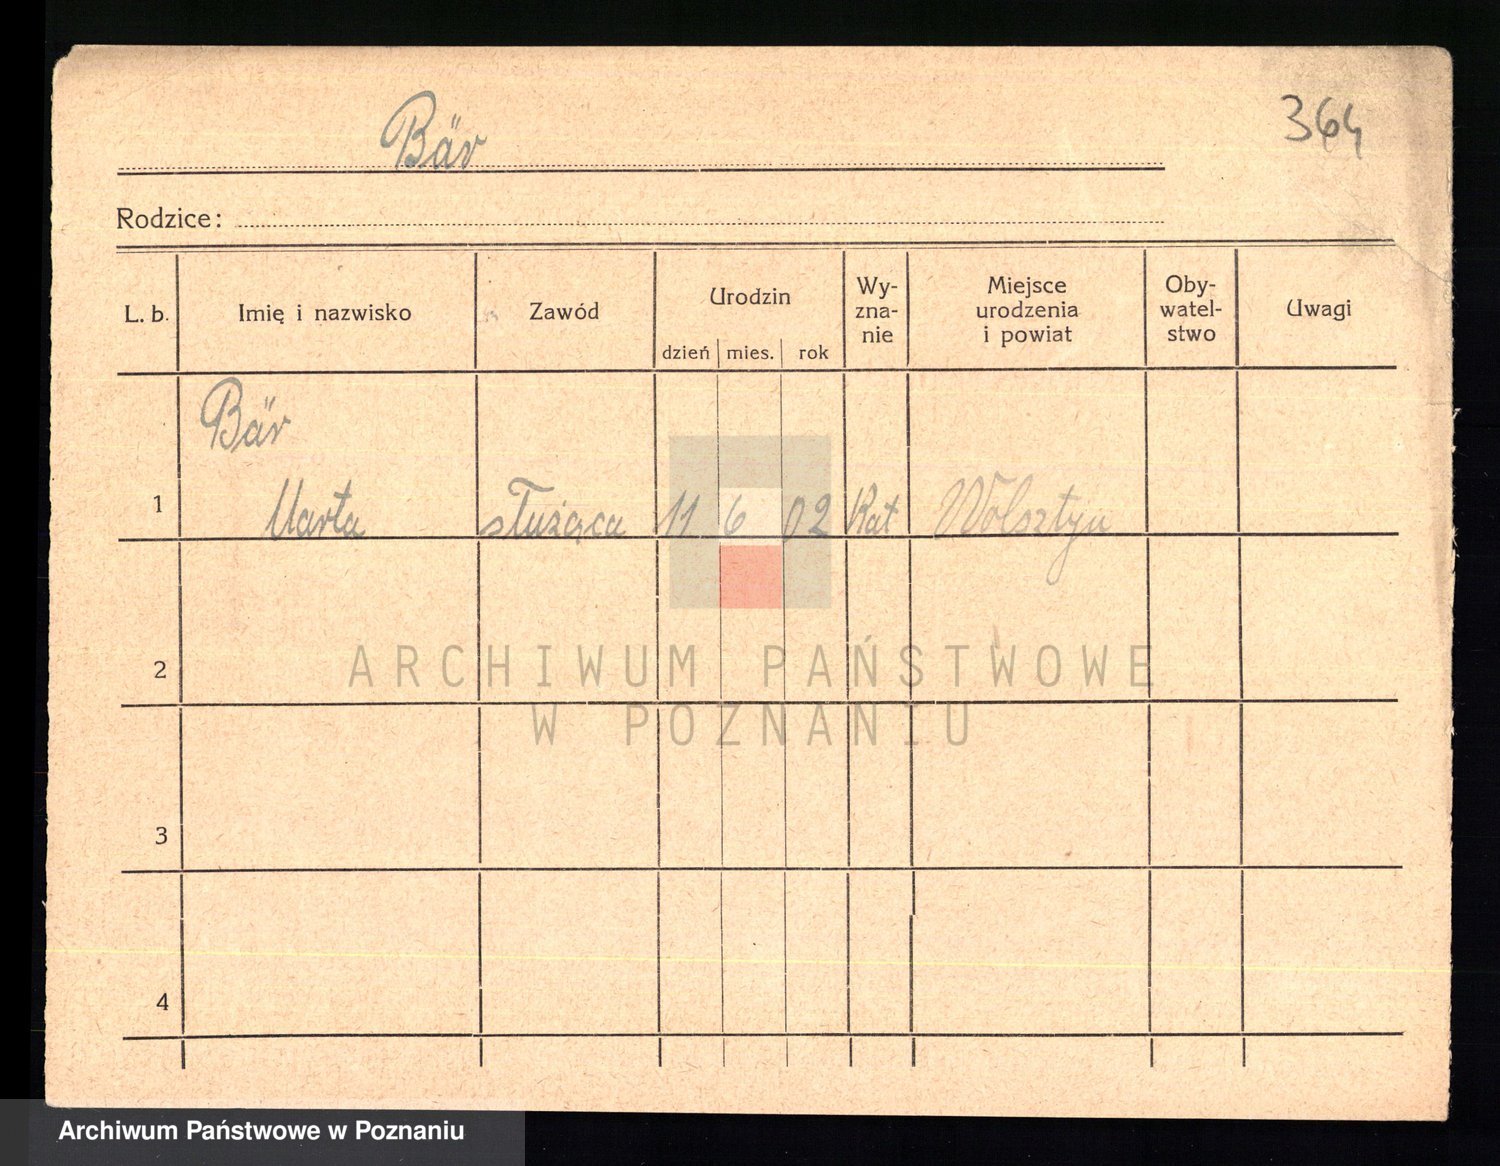 364
Bär
Rodzice:
L. b. Imię i nazwisko Zawód Urodzin dzień mies. rok Wy-zna-nie Miejsce urodzenia i powiat Oby-watel-stwo Uwagi
Bär
1 Marta służąca 11 6 02 Kat Wolsztyn
2
ARCHIWUM PAŃSTWOWE
W POZNANIU
3
4
Archiwum Państwowe w Poznaniu